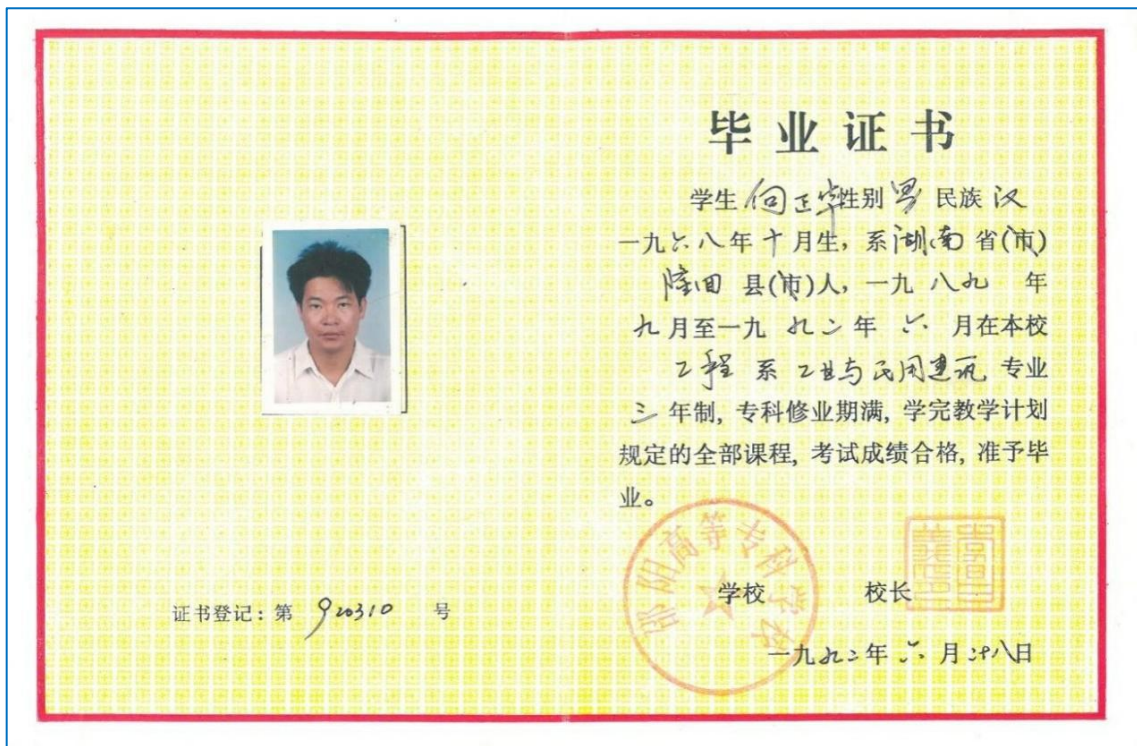 毕业证书
学生 向正华 性别 男 民族 汉
一九六八年十月生，系湖南省(市)
隆回 县(市)人，一九八九 年
九月至一九九二年六月在本校
工程 系 工业与民用建筑 专业
三年制, 专科修业期满, 学完教学计划
规定的全部课程, 考试成绩合格, 准予毕
业。
邵阳高等专科学校
学校 校长
一九九二年六月廿八日
证书登记：第 920310 号